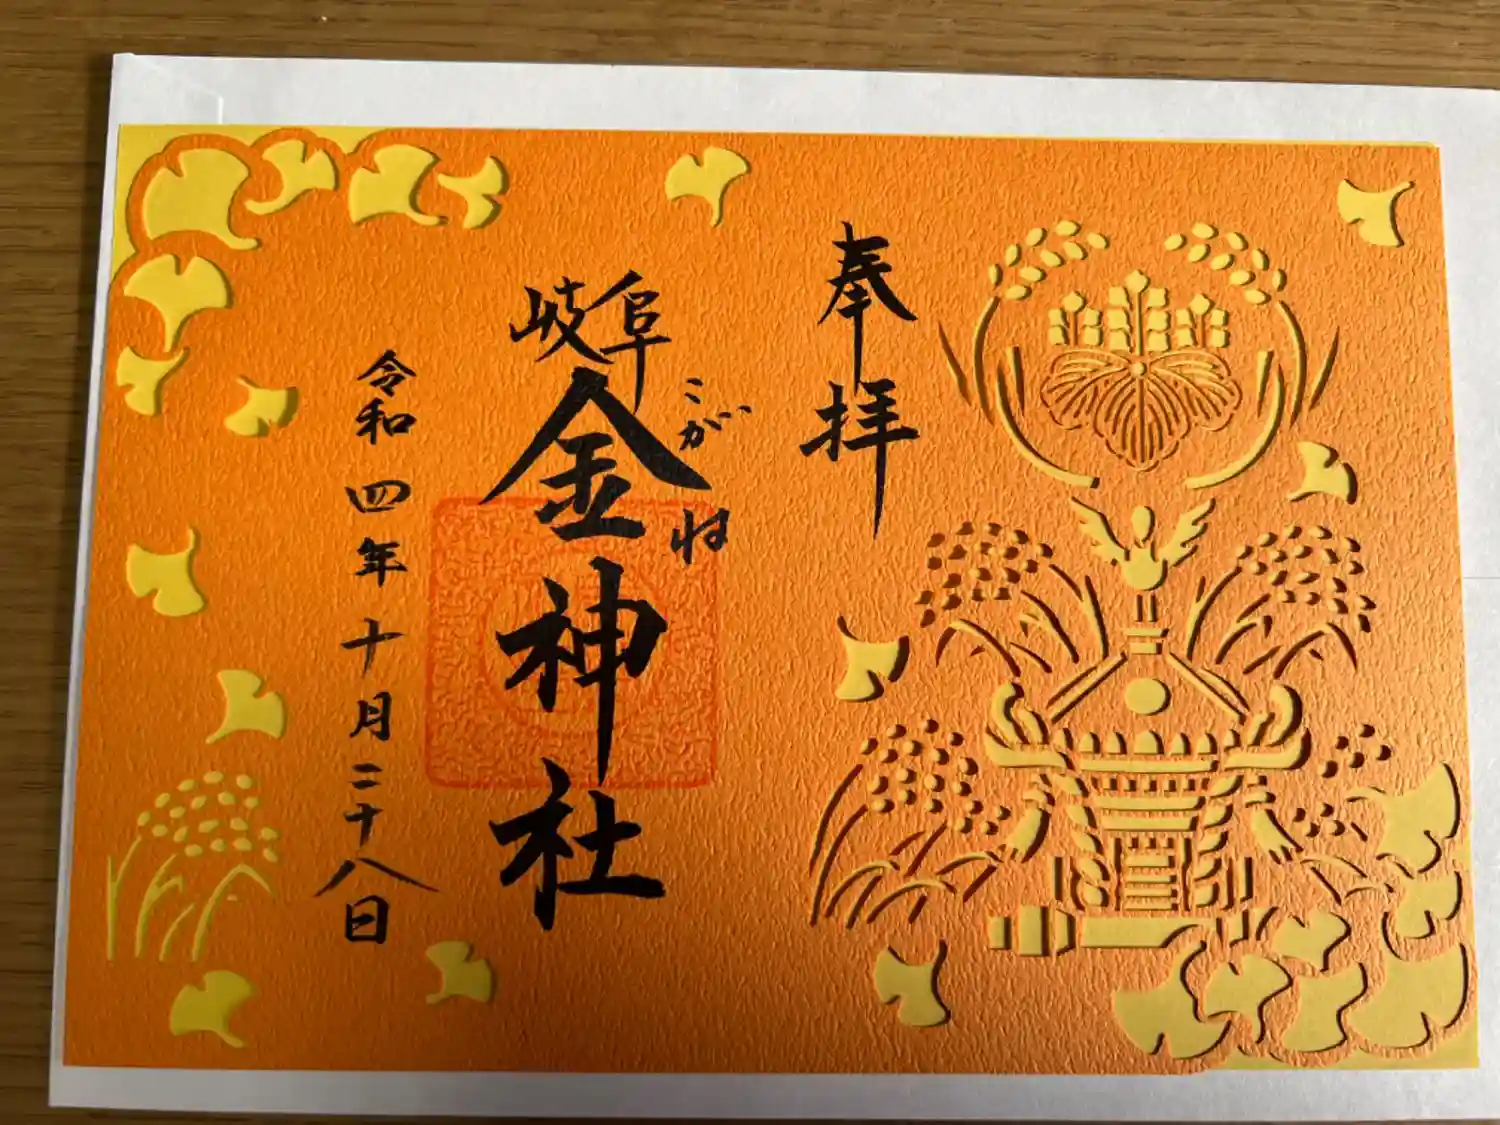 奉拝
岐阜
こがね
金神社
令和四年十月二十八日